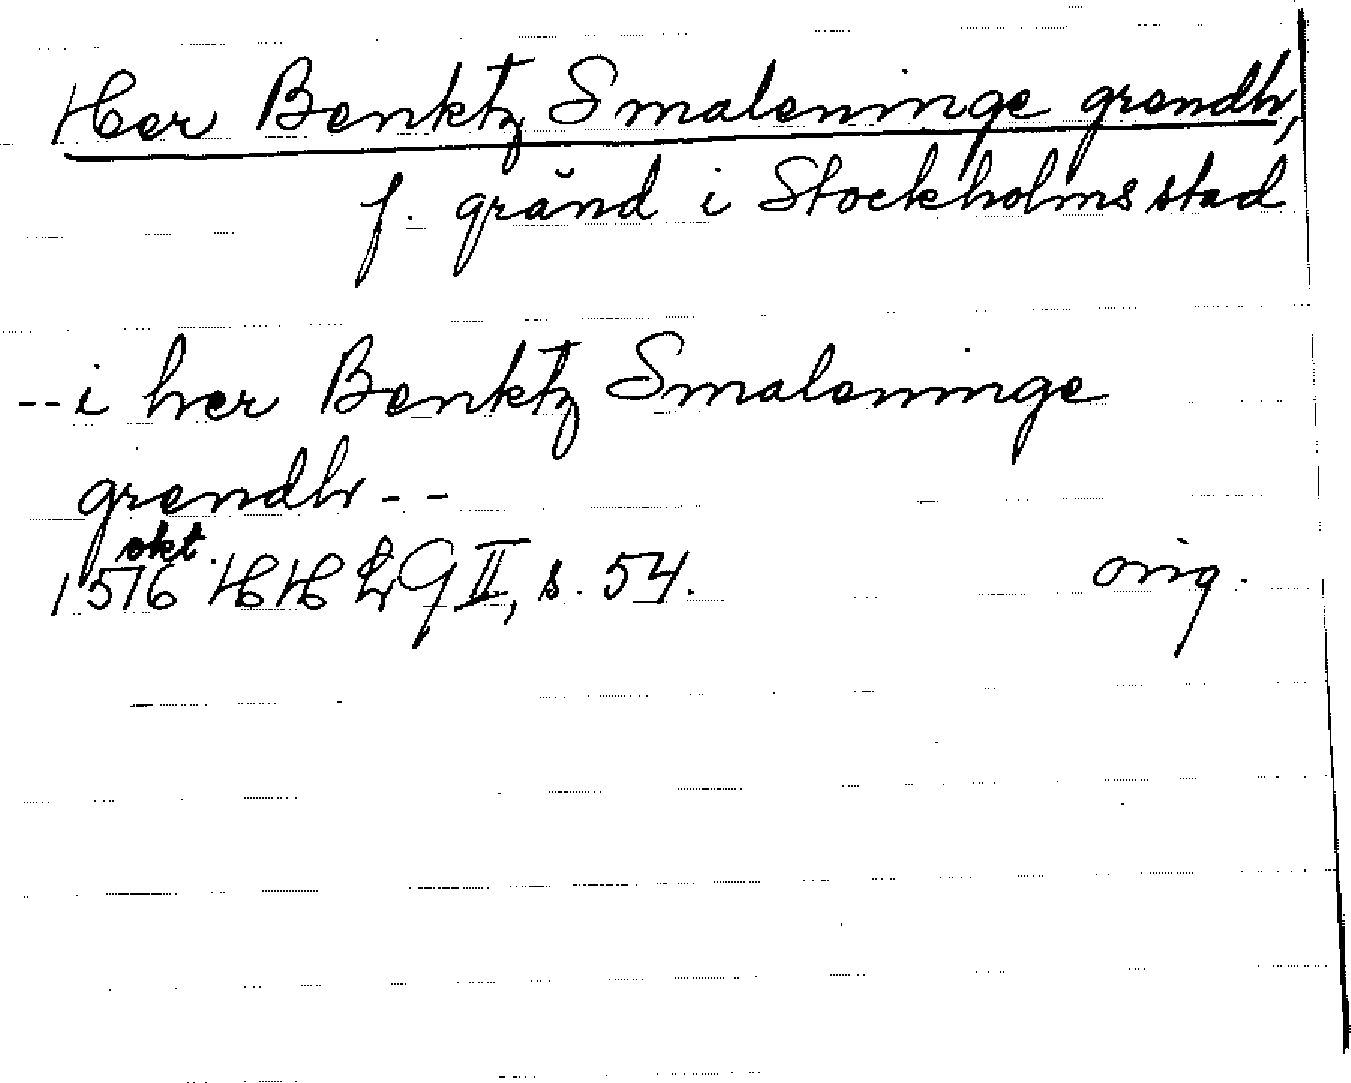 Her Benktz Smaleninge grendh,
f. gränd i Stockholms stad
--i her Benktz Smaleninge
grendh--
okt.
1576 HH II, s. 54. orig.